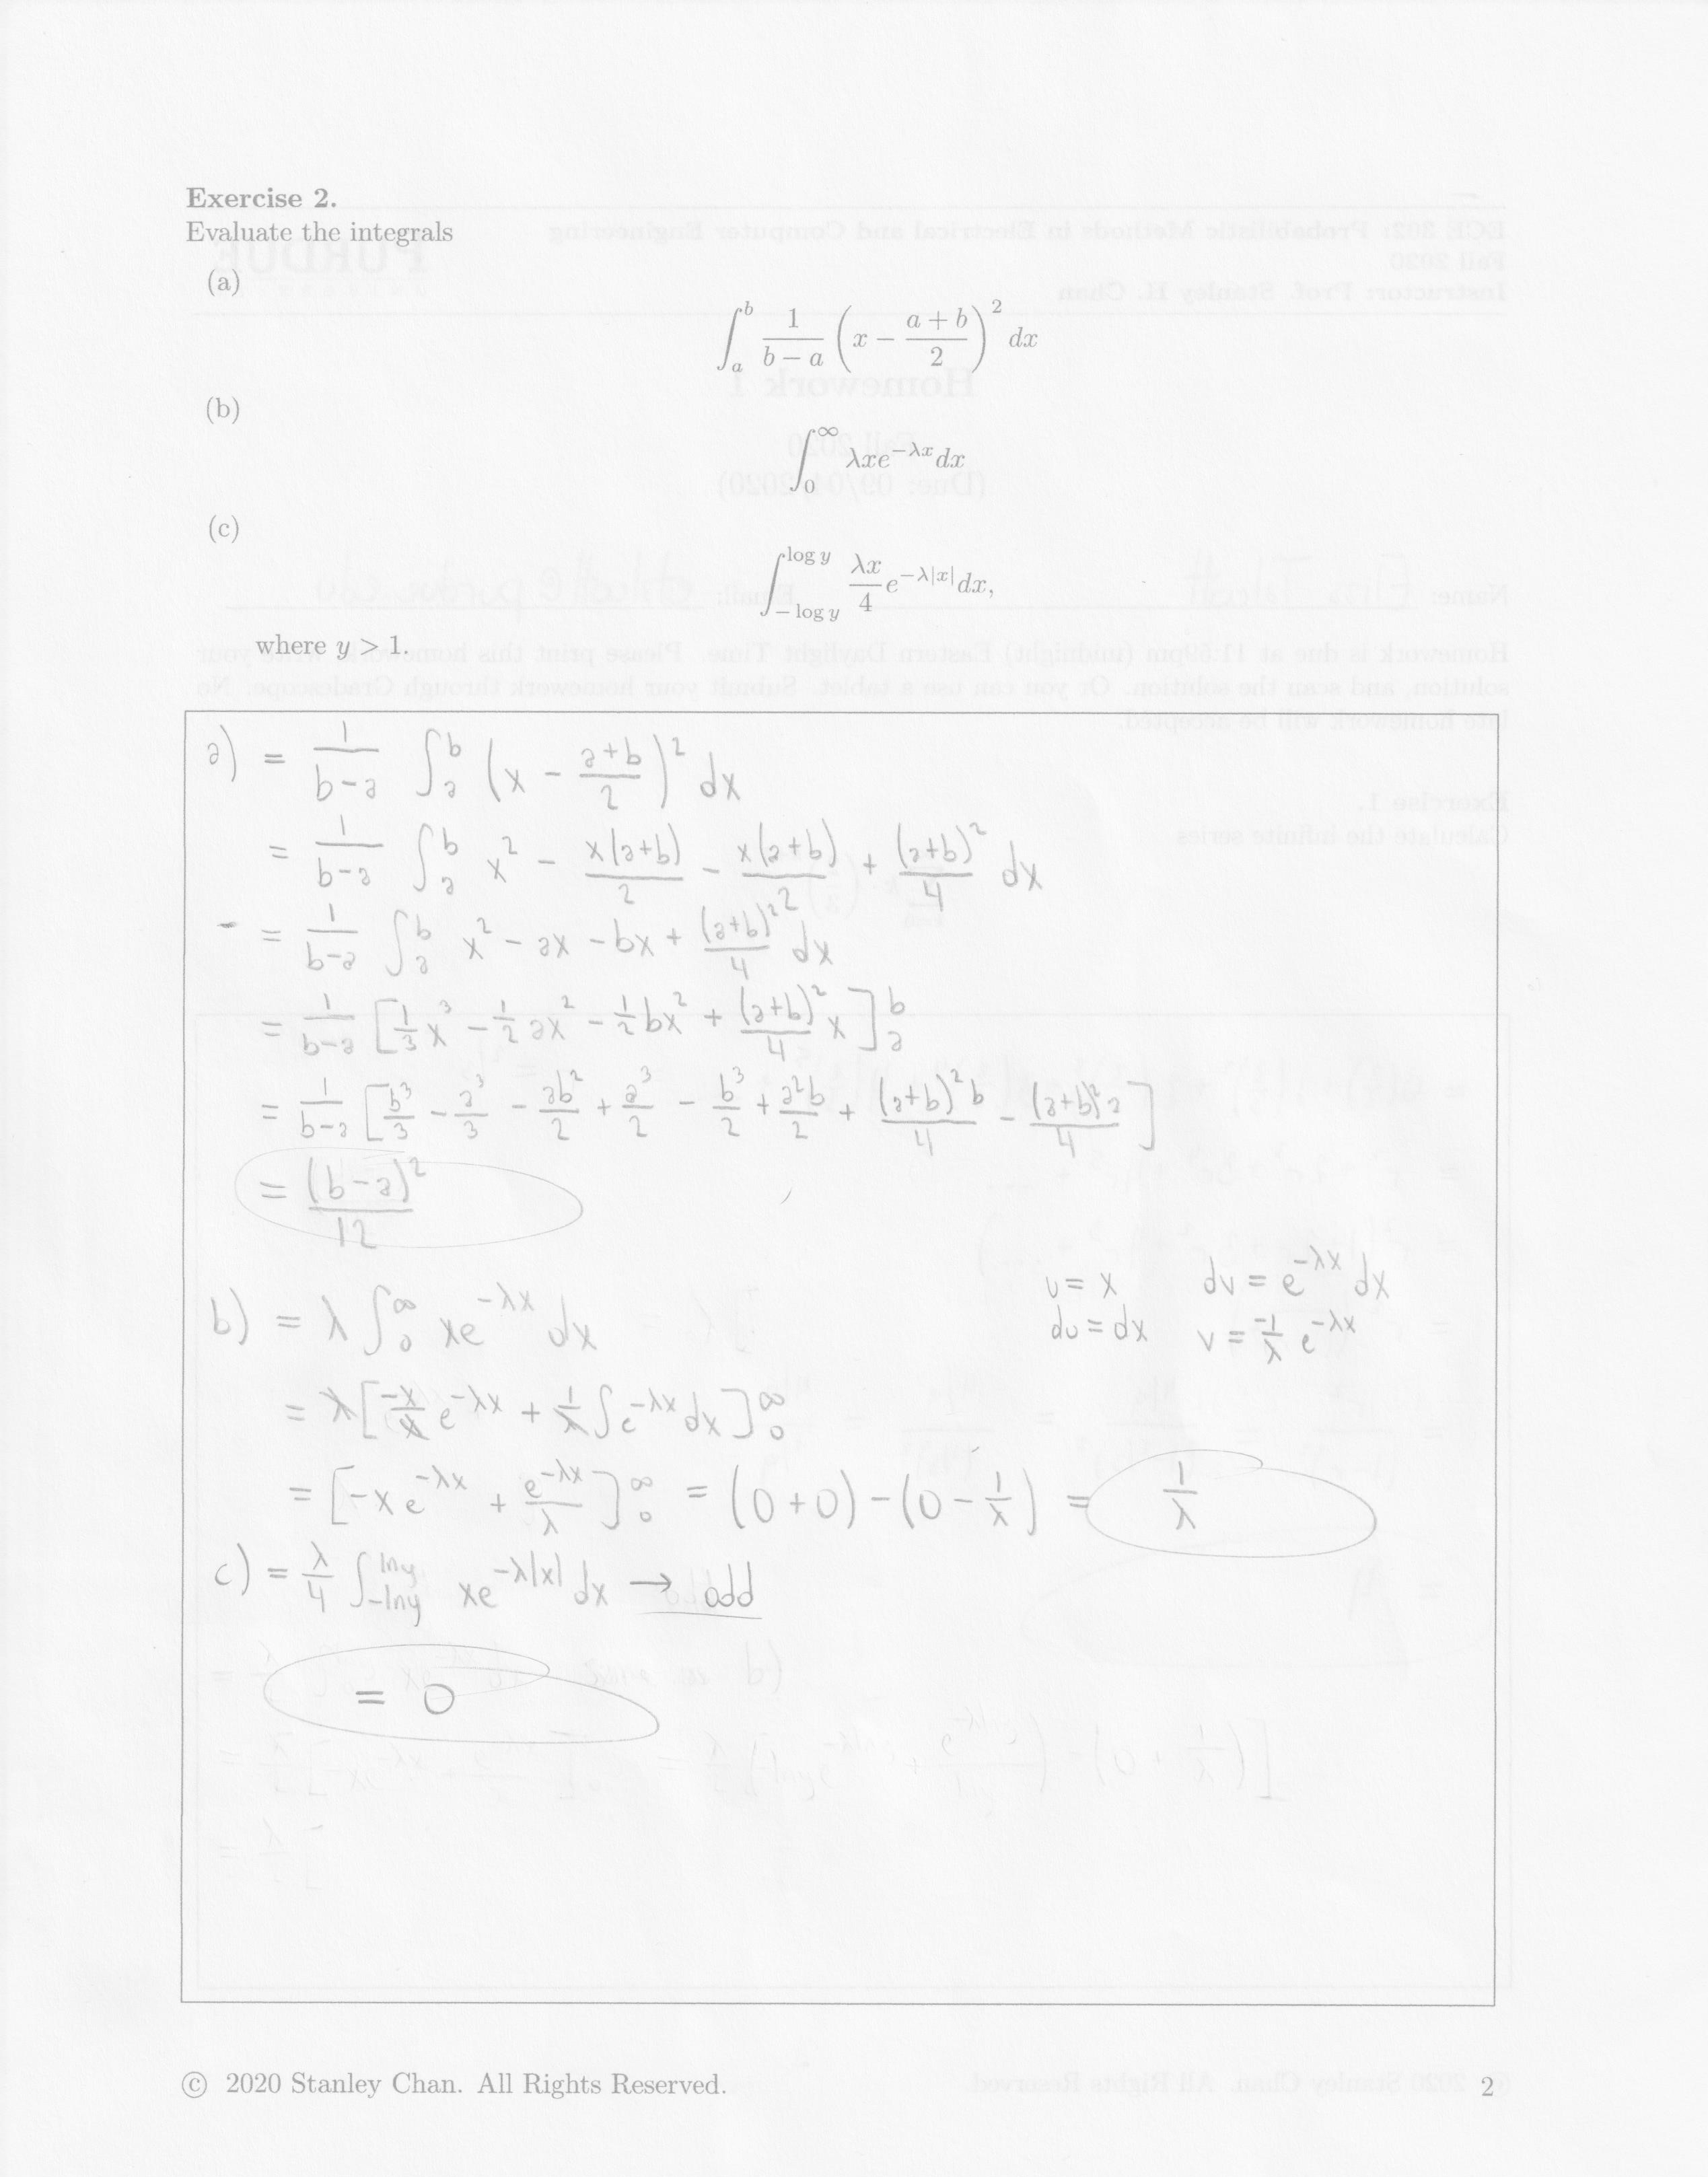 Exercise 2.
Evaluate the integrals
(a)
∫_a^b 1/(b − a) (x − (a + b)/2)^2 dx
(b)
∫_0^∞ λxe^{−λx} dx
(c)
∫_{− log y}^{log y} λx/4 e^{−λ|x|} dx,
where y > 1.
a) = 1/(b−a) ∫_a^b (x − (a+b)/2)^2 dx
= 1/(b−a) ∫_a^b x^2 − x(a+b)/2 − x(a+b)/2 + (a+b)^2/4 dx
= 1/(b−a) ∫_a^b x^2 − ax − bx + (a+b)^2/4 dx
= 1/(b−a) [1/3 x^3 − 1/2 ax^2 − 1/2 bx^2 + (a+b)^2/4 x]_a^b
= 1/(b−a) [b^3/3 − a^3/3 − ab^2/2 + a^3/2 − b^3/2 + a^2b/2 + (a+b)^2 b/4 − (a+b)^2 a/4]
= (b−a)^2/12
b) = λ ∫_0^∞ xe^{−λx} dx
u = x dv = e^{−λx} dx
du = dx v = −1/λ e^{−λx}
= λ[−x/λ e^{−λx} + 1/λ ∫ e^{−λx} dx]_0^∞
= [−x e^{−λx} + e^{−λx}/λ]_0^∞ = (0+0) − (0 − 1/λ) = 1/λ
c) = λ/4 ∫_{−lny}^{lny} xe^{−λ|x|} dx → odd
= 0
© 2020 Stanley Chan. All Rights Reserved. 2